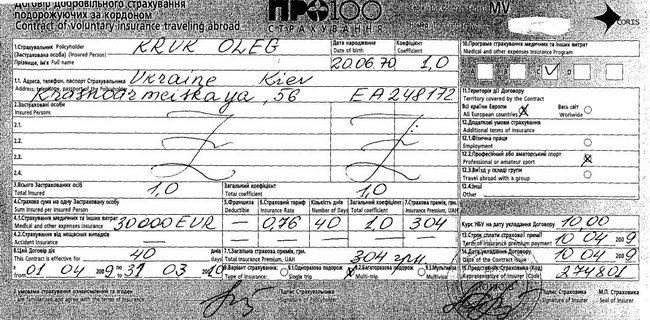 Договір добровільного страхування
подорожуючих за кордоном
Contract of voluntary insurance traveling abroad
ПРО100
СТРАХУВАННЯ
MV
CORIS
1.Страхувальник Policyholder
(Застрахована особа) (Insured Person)
Прізвище, ім'я Full name
KRUK OLEG
Дата народження
Date of birth
20.06.70
Коефіцієнт
Coefficient
1,0
10.Програма страхування медичних та інших витрат
Medical and other expenses insurance Program
A B C D
1.1. Адреса, телефон, паспорт Страхувальника
Address, telephone, passport of the Policyholder
Ukraine Kiev
Krasnoarmeiskaya, 56 EA248172
11.Територія дії Договору
Territory covered by the Contract
Всі країни Європи
All European countries
Весь світ
Worlwide
2.Застраховані особи
Insured Persons
2.1.
2.2.
2.3.
2.4.
12.Додаткові умови страхування
Additional terms of insurance
12.1.Фізична праця
Employment
12.2.Професійний або аматорський спорт
Professional or amateur sport
12.3.Виїзд у складі групи
Travel abroad with a group
12.4.Інші
Other
3.Всього Застрахованих осіб
Total Insured
1,0
Загальний коефіцієнт
Total coefficient
1,0
4.Страхова сума на одну Застраховану особу
Sum insured per Insured Person
5.Франшиза
Deductible
6.Страховий тариф
Insurance Rate
Кількість днів
Number of Days
Загальний коефіцієнт
Total coefficient
7.Страхова премія, грн.
Insurance Premium, UAH
4.1.Страхування медичних та інших витрат
Medical and other expenses insurance
30000 EUR — 0,76 40 1,0 304
4.2.Страхування від нещасних випадків
Accident Insurance
Курс НБУ на дату укладання Договору 10,00
13.Строк сплати страхової премії
Term of insurance premium payment
10 04 2009
14.Дата укладання Договору
10 04 2009
8.Цей Договір діє
This Contract is effective for
40
днів
days
7.1.Загальна страхова премія, грн.
Total Insurance Premium, UAH
304 грн
from 01 04 2009 to 31 03 2010
9.Варіант страхування:
Type of insurance:
9.1.Одноразова подорож
Single trip
9.2.Багаторазова подорож
Multi-trip
15.Представник Страховика (Код)
Representative of Insurer (Code)
274801
З умовами страхування ознайомлений та згоден
I am familiarized and agree with the terms of insurance
Підпис Страхувальника
Підпис Страховика
Signature of Insurer
М.П. Страховика
Seal of Insurer